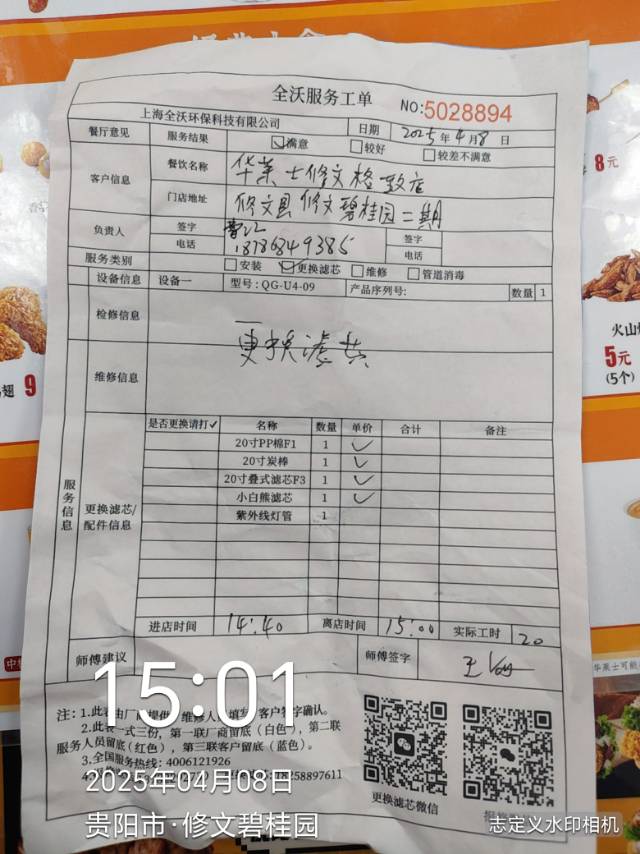 全沃服务工单
NO:5028894
上海全沃环保科技有限公司 日期 2025年4月8日
餐厅意见 服务结果 ☑满意 □较好 □较差不满意
客户信息 餐饮名称 华莱士修文格致店
门店地址 修文县修文碧桂园二期
负责人 签字 签字
电话 18786849385 电话
服务类别 □安装 ☑更换滤芯 □维修 □管道消毒
设备信息 设备一 型号:QG-U4-09 产品序列号: 数量 1
检修信息
更换滤芯
维修信息
服务信息
更换滤芯/配件信息
是否更换请打✓ 名称 数量 单价 合计 备注
20寸PP棉F1 1 ✓
20寸炭棒 1 ✓
20寸叠式滤芯F3 1 ✓
小白熊滤芯 1 ✓
紫外线灯管 1
进店时间 14:40 离店时间 15:00 实际工时 20
师傅建议 师傅签字
注:1.此表由厂商提供,维修人员填写,客户签字确认。
2.此表一式三份,第一联厂商留底(白色),第二联
服务人员留底(红色),第三联客户留底(蓝色)。
3.全国服务热线:4006121926
更换滤芯微信
15:01
2025年04月08日
贵阳市·修文碧桂园
志定义水印相机
8元
火山
5元
(5个)
翅 9
华莱士可能